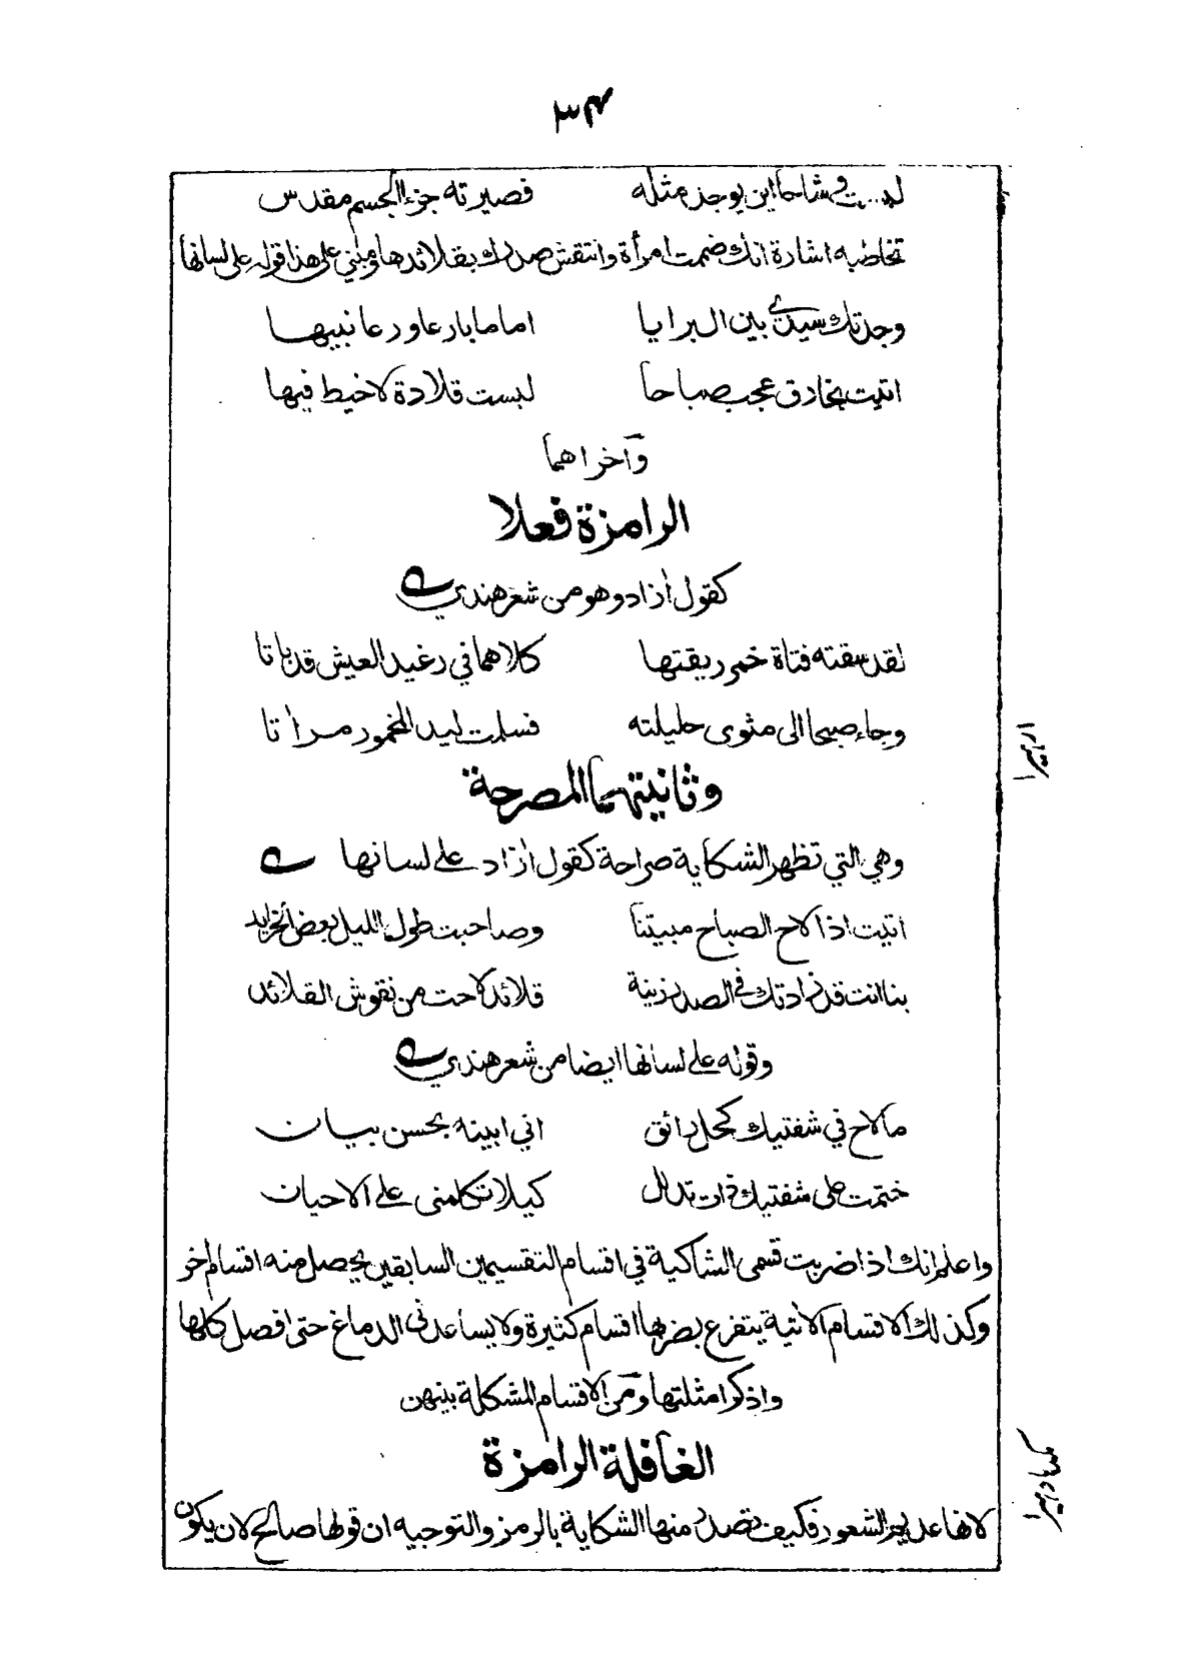 ٣٤
لبست وشاحا اين يوجد مثله فصيرته جزء الجسم مقدس
تخاطبه اشارة انك ضممت امرأة وانتقش صدرك بقلائدها ومبني على هذا قوله على لسانها
وجدتك سيدي بين البرايا اماما بارعا ورعا نبيها
اتيت بخارق عجب صباحا لبست قلادة لا خيط فيها
وآخراهما
الرامزة فعلا
كقول أزاد وهو من شعر هندي
لقد سقته فتاة خمر ريقتها كلاهما في رغيد العيش قد باتا
وجاء صبحا الى مثوى حليلته فسلمت ليد المخمور مرأتا
وثانيتهما المصرحة
وهي التي تظهر الشكاية صراحة كقول أزاد على لسانها
اتيت اذا لاح الصباح مبيتنا وصاحبت طول الليل بعض الخرايد
بنا انت قد زادتك في الصدر زينة قلائد لاحت من نقوش القلائد
وقوله على لسانها ايضا من شعر هندي
ما لاح في شفتيك كحل رائق اني ابينه بحسن بيان
ختمت على شفتيك ذات تدلل كيلا تكلمني على الاحيان
واعلم انك اذا ضربت قسمي الشاكية في اقسام التقسيمين السابقين يحصل منه اقسام أخر
وكذلك الاقسام الآتية يتفرع بضربها اقسام كثيرة ولا يساعدني الدماغ حتى افصل كلها
واذكر امثلتها ومن الاقسام المشكلة بينهن
الغافلة الرامزة
لانها عديمة الشعور فكيف تصدر منها الشكاية بالرمز والتوجيه ان قولها صالح لان يكون